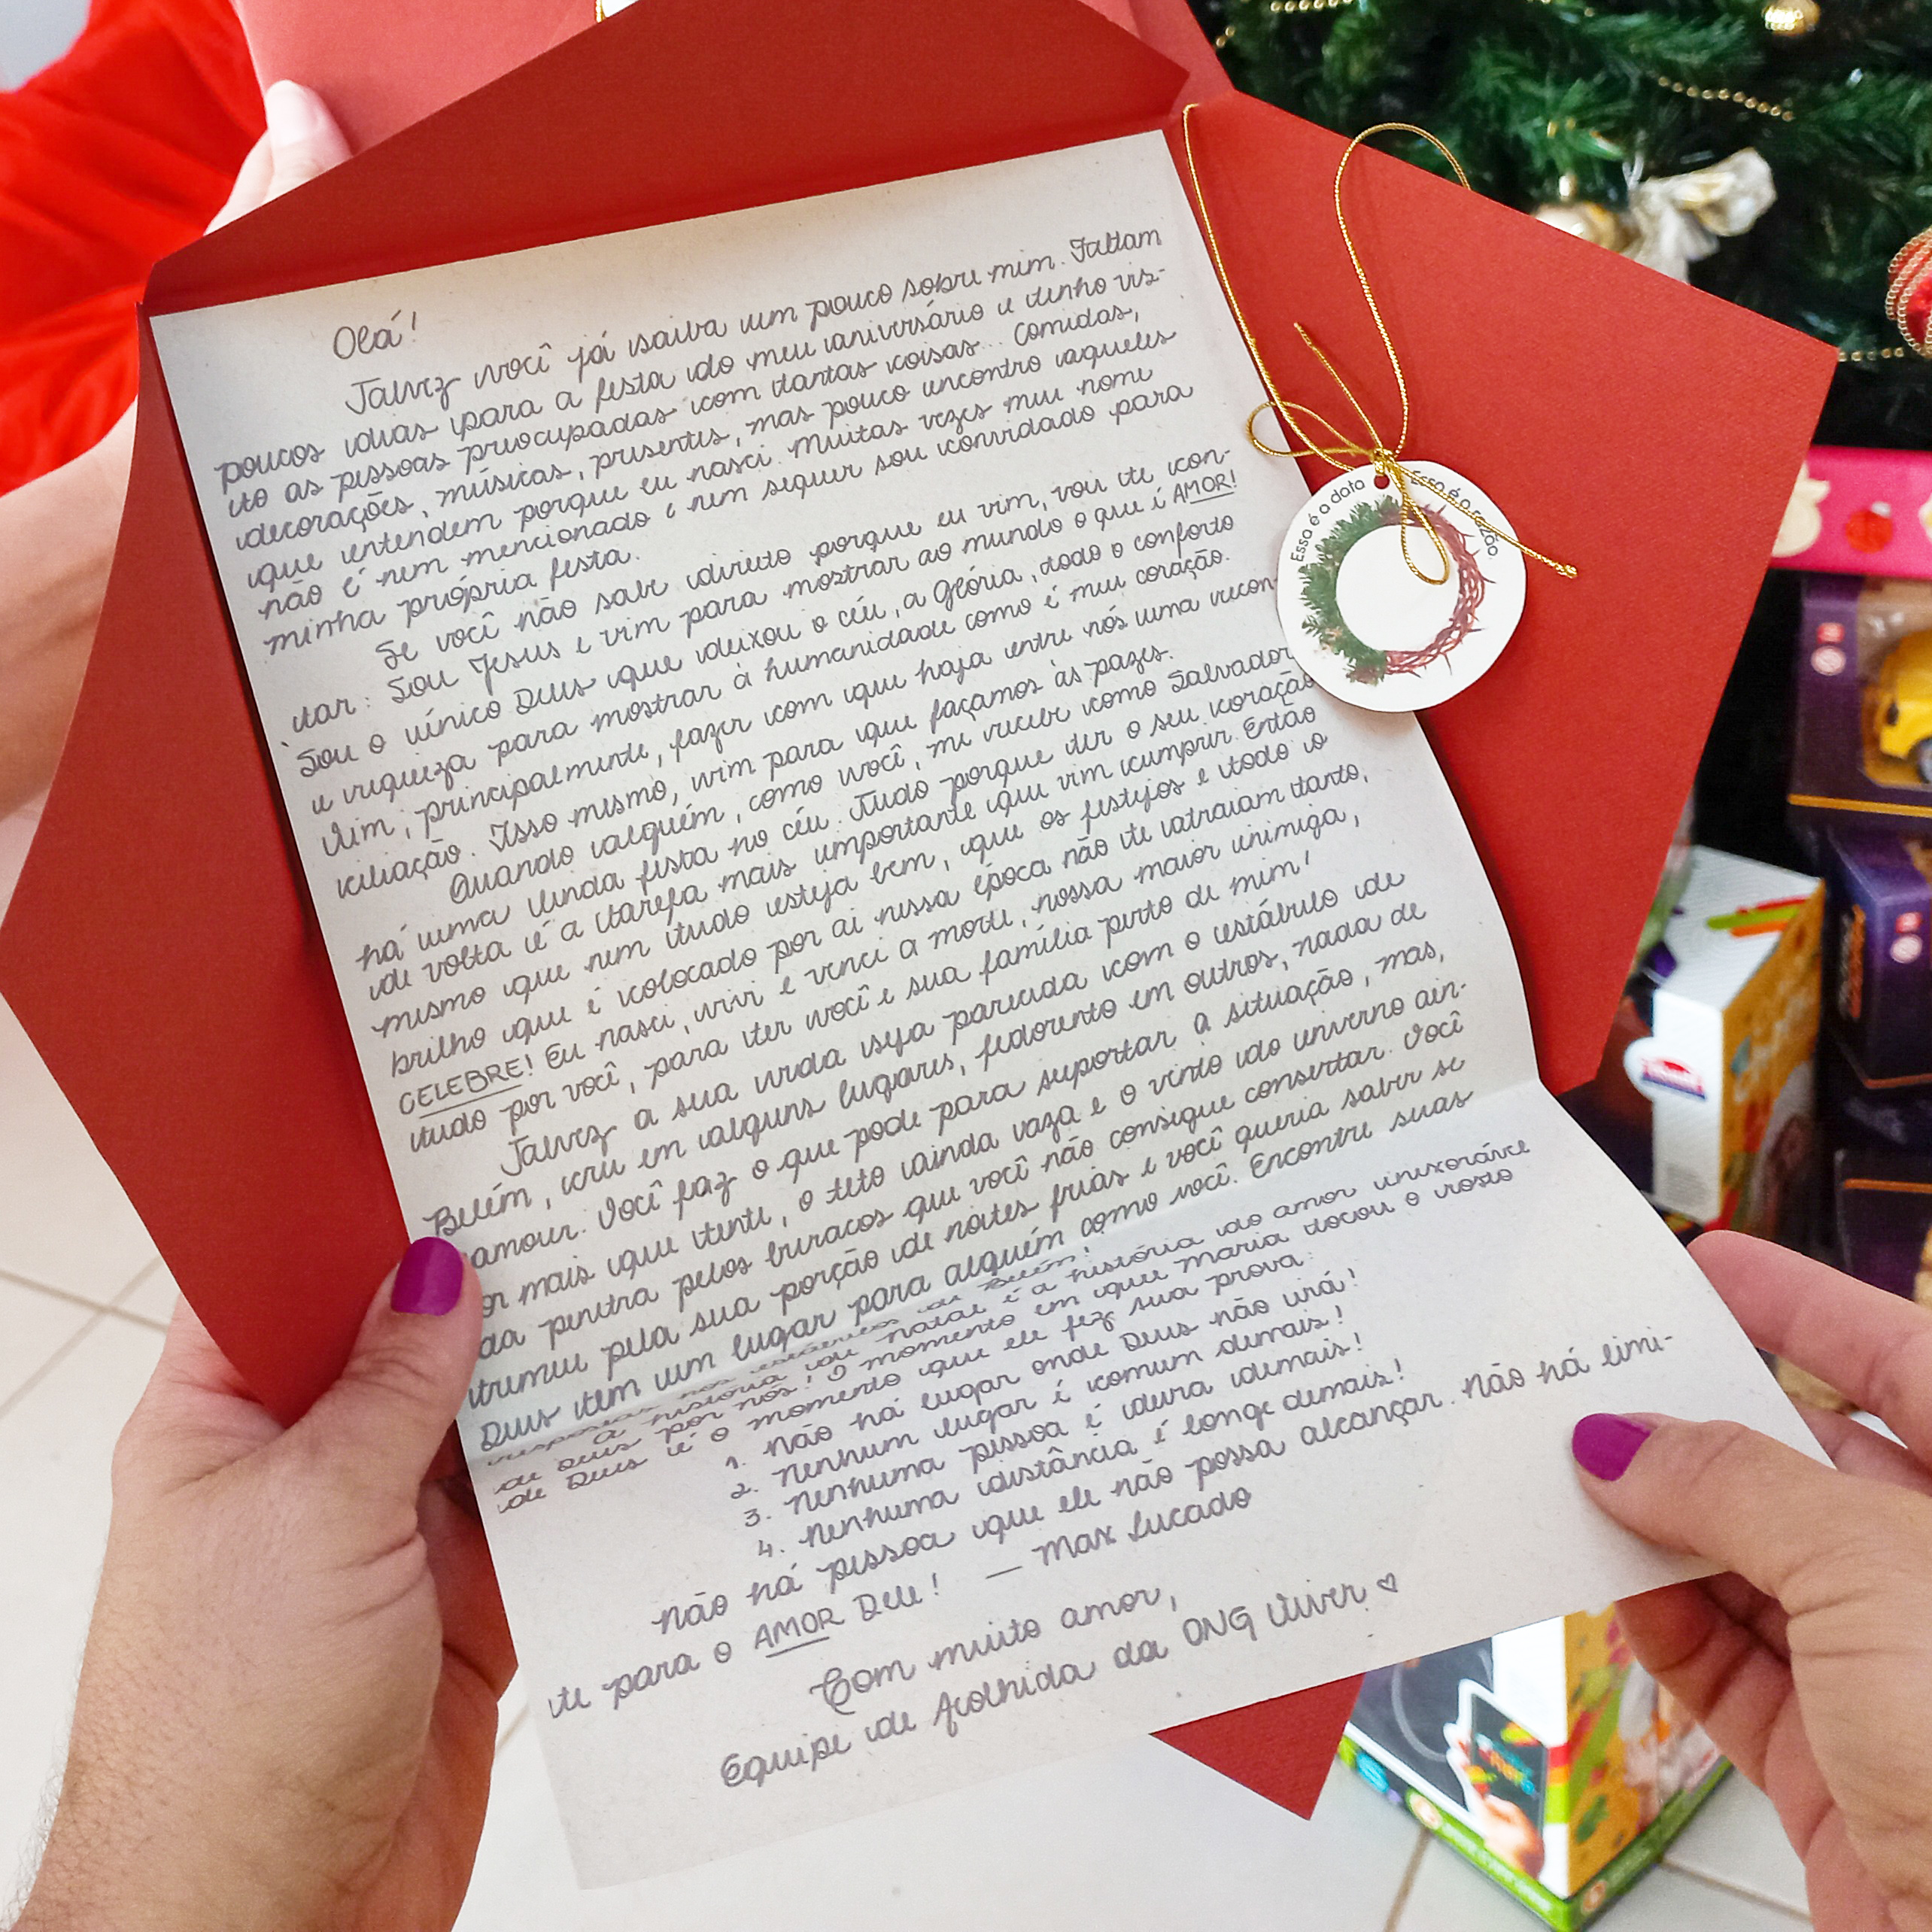 Olá!
Talvez você já saiba um pouco sobre mim. Faltam
poucos dias para a festa do meu aniversário e tenho vis-
to as pessoas preocupadas com tantas coisas... Comidas,
decorações, músicas, presentes, mas pouco encontro aqueles
que entendem porque eu nasci. Muitas vezes meu nome
não é nem mencionado e nem sequer sou convidado para
minha própria festa.
Se você não sabe direito porque eu vim, vou te con-
tar: Sou Jesus e vim para mostrar ao mundo o que é AMOR!
Sou o único Deus que deixou o céu, a Glória, todo o conforto
e riqueza para mostrar à humanidade como é meu coração.
Vim, principalmente, fazer com que haja entre nós uma recon-
ciliação. Isso mesmo, vim para que façamos às pazes.
Quando alguém, como você, me recebe como Salvador
há uma linda festa no céu. Tudo porque ter o seu coração
de volta é a tarefa mais importante que vim cumprir. Então
mesmo que nem tudo esteja bem, que os festejos e todo o
brilho que é colocado por ai nessa época não te atraiam tanto,
CELEBRE! Eu nasci, vivi e venci a morte, nossa maior inimiga,
tudo por você, para ter você e sua família perto de mim!
Talvez a sua vida seja parecida com o estábulo de
Belém, cru em alguns lugares, fedorento em outros, nada de
amour. Você faz o que pode para suportar a situação, mas,
or mais que tente, o teto ainda vaza e o vento do inverno ain-
da penetra pelos buracos que você não consegue consertar. Você
tremeu pela sua porção de noites frias e você queria saber se
Deus tem um lugar para alguém como você. Encontre suas
respostas nos estábulos de Belém!
A história do natal é a história do amor inexorável
de Deus por nós! O momento em que Maria tocou o rosto
de Deus é o momento que ele fez sua prova:
1. Não há lugar onde Deus não irá!
2. Nenhum lugar é comum demais!
3. Nenhuma pessoa é dura demais!
4. Nenhuma distância é longe demais!
Não há pessoa que ele não possa alcançar. Não há limi-
te para o AMOR Dele! — Max Lucado
Com muito amor,
Equipe de Acolhida da ONG Viver ♡
Essa é a data
Essa é a razão